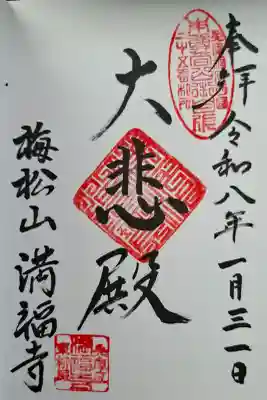 奉拝 令和八年一月三一日
大悲殿
梅松山 満福寺